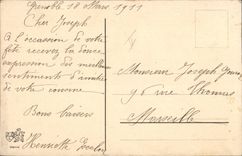 Grenoble 18 Mars 1911
Cher Joseph
A l'occasion de votre
fête recevez la douce
expression des meilleurs
sentiments d'amitié
de votre cousine
Bons baisers
Henriette
Monsieur Joseph
96 rue Thomas
Marseille